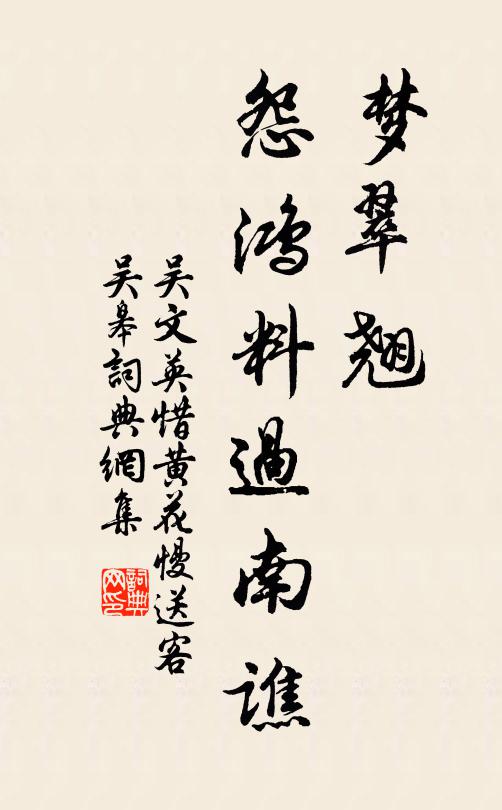 梦翠翘
怨鸿料過南谯
吴文英惜黄花慢送客
吴皋詞典網集
詞典网印